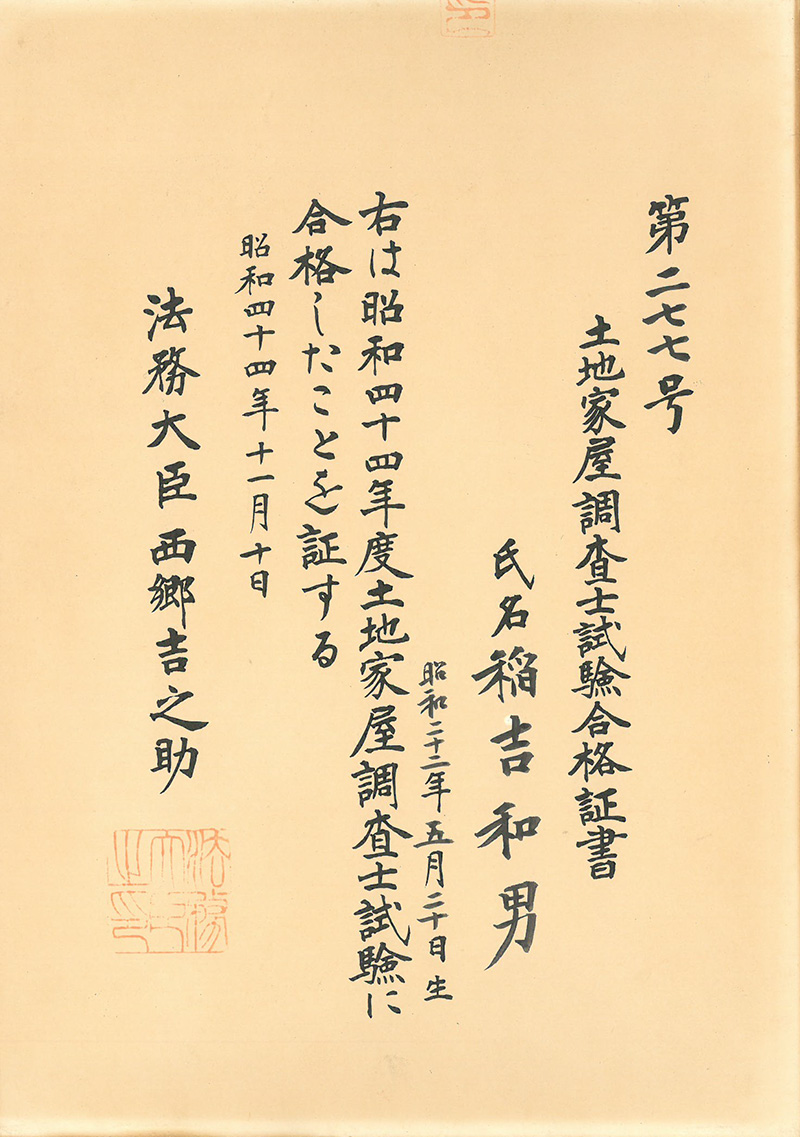 第二七七号
土地家屋調査士試験合格証書
氏名 稲吉和男
昭和二十二年五月二十日生
右は昭和四十四年度土地家屋調査士試験に
合格したことを証する
昭和四十四年十一月十日
法務大臣 西郷吉之助
法務大臣之印